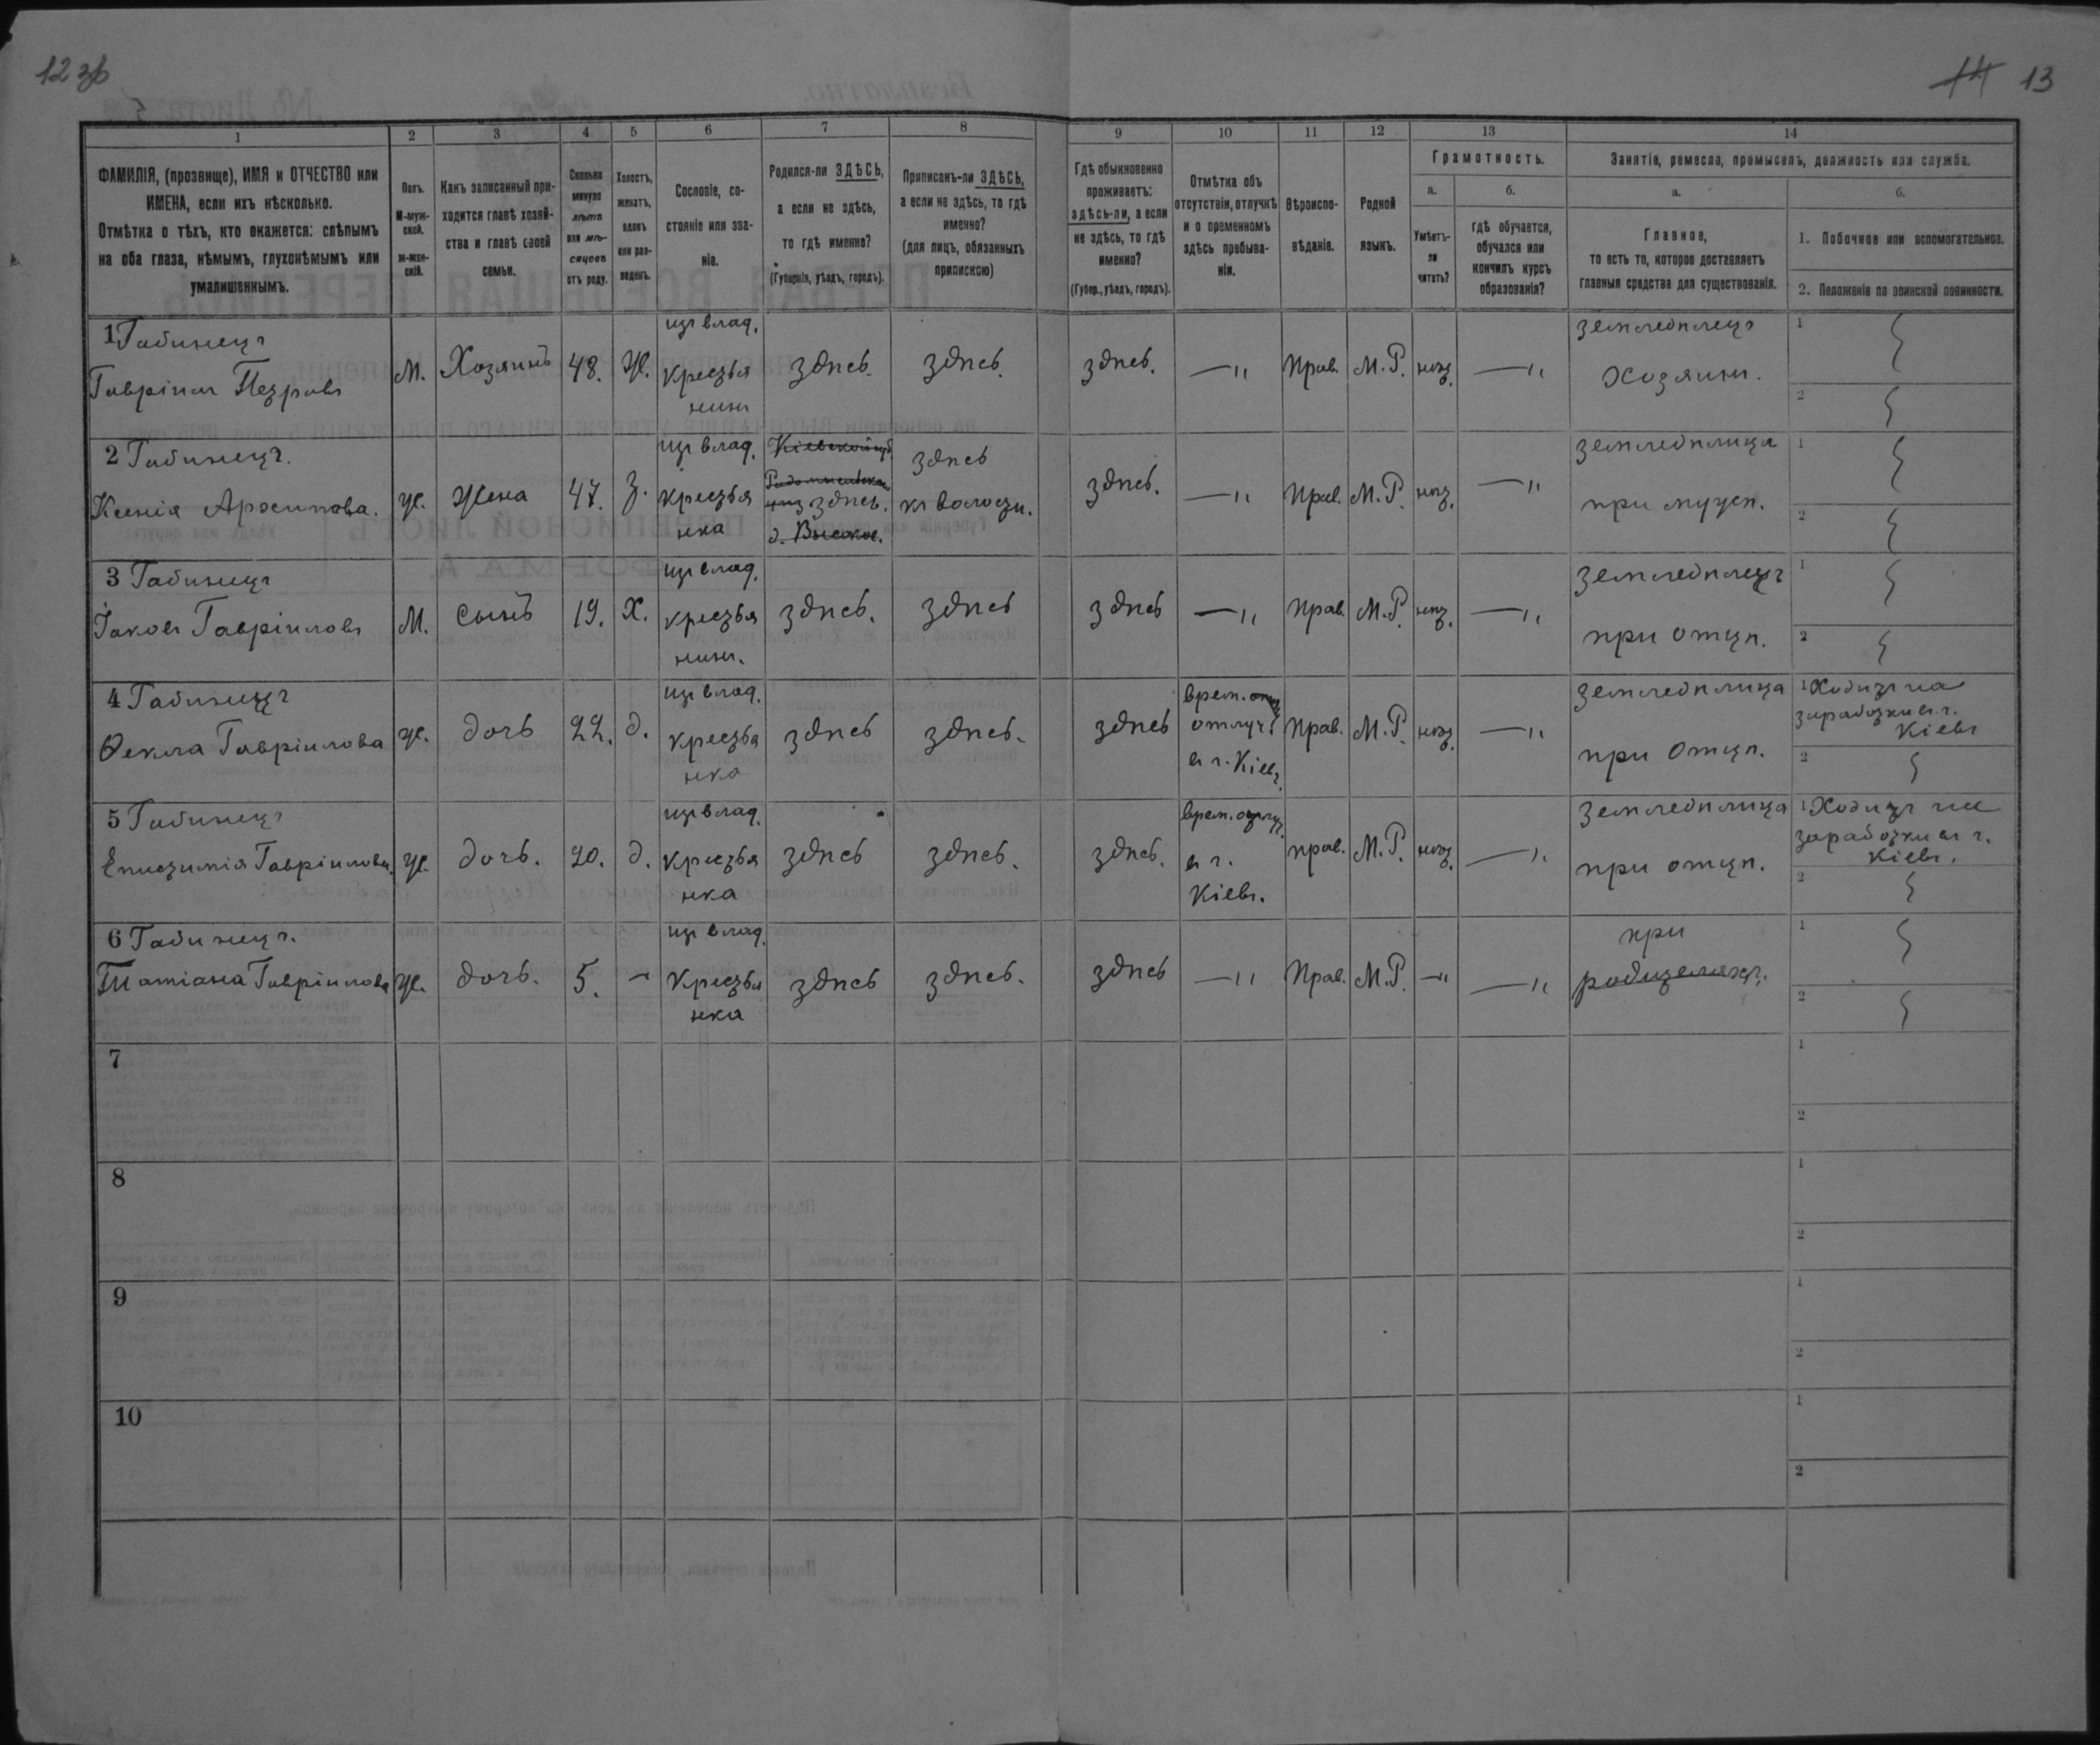 12 зв
14 13
1 2 3 4 5 6 7 8 9 10 11 12 13 14
ФАМИЛІЯ, (прозвище), ИМЯ и ОТЧЕСТВО или
ИМЕНА, если ихъ нѣсколько.
Отмѣтка о тѣхъ, кто окажется: слѣпымъ
на оба глаза, нѣмымъ, глухонѣмымъ или
умалишеннымъ.
Полъ.
М-муж-
ской.
ж-жен-
скій.
Какъ записанный при-
ходится главѣ хозяй-
ства и главѣ своей
семьи.
Сколько
минуло
лѣтъ
или мѣ-
сяцевъ
отъ роду.
Холостъ,
женатъ,
вдовъ
или раз-
веденъ.
Сословіе, со-
стояніе или зва-
ніе.
Родился-ли ЗДѢСЬ,
а если не здѣсь,
то гдѣ именно?
(Губернія, уѣздъ, городъ).
Приписанъ-ли ЗДѢСЬ,
а если не здѣсь, то гдѣ
именно?
(для лицъ, обязанныхъ
припискою)
Гдѣ обыкновенно
проживаетъ:
здѣсь-ли, а если
не здѣсь, то гдѣ
именно?
(Губер., уѣздъ, городъ).
Отмѣтка объ
отсутствіи, отлучкѣ
и о временномъ
здѣсь пребыва-
ніи.
Вѣроиспо-
вѣданіе.
Родной
языкъ.
Грамотность.
а.
Умѣетъ-
ли
читать?
б.
гдѣ обучается,
обучался или
кончилъ курсъ
образованія?
Занятіе, ремесло, промыселъ, должность или служба.
а.
Главное,
то есть то, которое доставляетъ
главныя средства для существованія.
б.
1. Побочное или вспомогательное.
2. Положеніе по воинской повинности.
1 Габинецъ
Гавріилъ Петровъ
М. Хозяинъ 48. Ж.
изъ влад.
крестья
нинъ
здѣсь. здѣсь. здѣсь. —"
Прав. М.Р. нѣт. —"
земледѣлецъ
хозяинъ.
1
2
2 Габинецъ.
Ксенія Архипова.
ж. Жена 47. З.
изъ влад.
крестья
нка
Кіевской губ
Радомысльскаго
здѣсь.
д. Высокое.
здѣсь
къ волости.
здѣсь. —" Прав. М.Р. нѣт. —"
земледѣлица
при мужѣ.
1
2
3 Габинецъ
Іаковъ Гавріиловъ
М. сынъ 19. Х.
изъ влад.
крестья
нинъ.
здѣсь. здѣсь здѣсь —" Прав. М.Р. нѣт. —"
земледѣлецъ
при отцѣ.
1
2
4 Габинецъ
Ѳекла Гавріилова
ж. дочь 22. д.
изъ влад.
крестья
нка
здѣсь здѣсь. здѣсь
врем.
отлуч.
въ г. Кіевъ.
Прав. М.Р. нѣт. —"
земледѣлица
при отцѣ.
1 Ходитъ на
заработки въ г.
Кіевъ
2
5 Габинецъ
Епистимія Гавріилова.
ж. дочь. 20. д.
изъ влад.
крестья
нка
здѣсь здѣсь. здѣсь.
врем. отлуч.
въ г.
Кіевъ.
прав. М.Р. нѣт. —"
земледѣлица
при отцѣ.
1 Ходитъ на
заработки въ г.
Кіевъ.
2
6 Габинецъ.
Татіана Гавріилова
ж. дочь. 5. —
изъ влад.
Крестья
нка
здѣсь здѣсь. здѣсь —" Прав. М.Р. —" —"
при
родителяхъ.
1
2
7
1
2
8
1
2
9
1
2
10
1
2